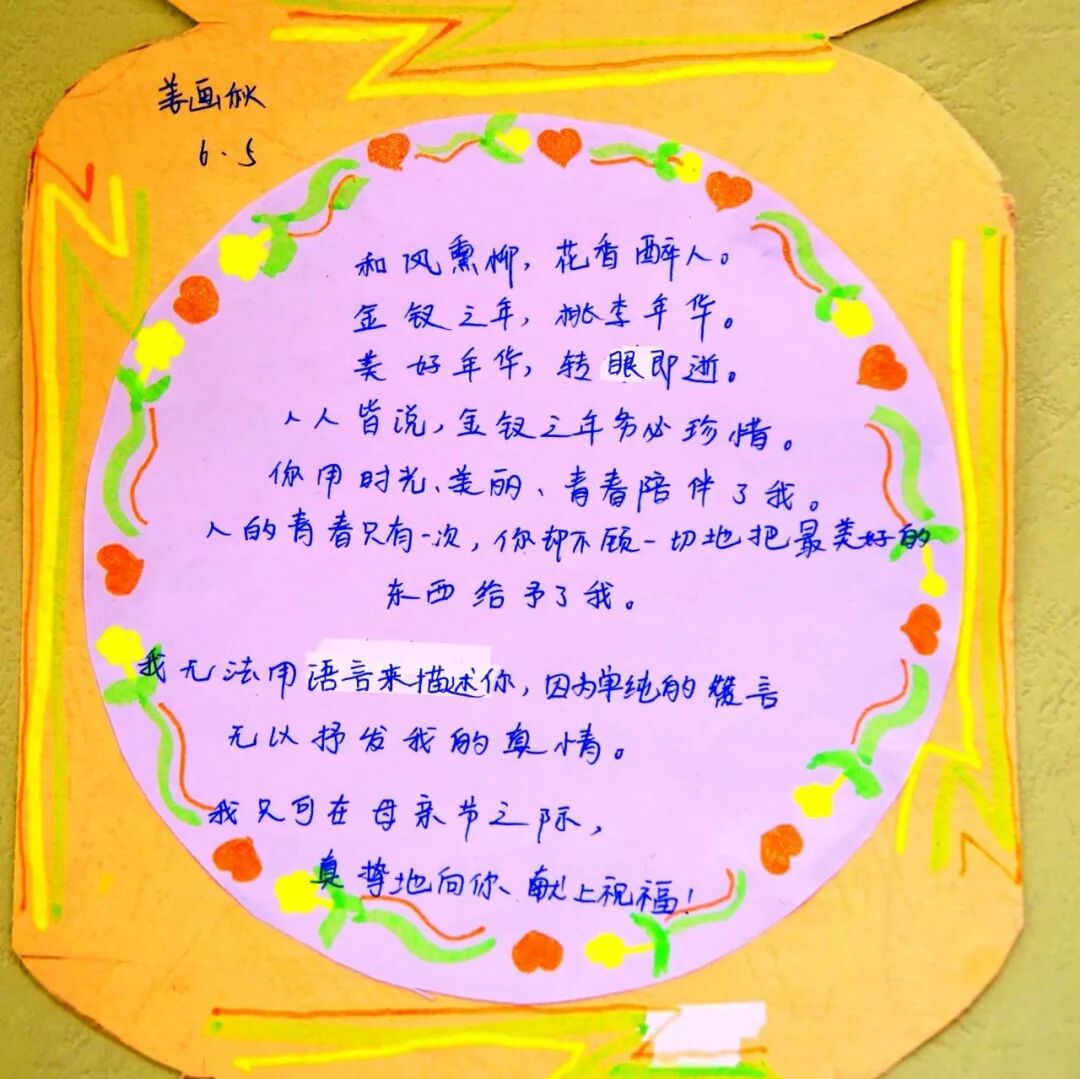 姜画秋
6.5
和风熏柳,花香醉人。
金钗之年,桃李年华。
美好年华,转眼即逝。
人人皆说,金钗之年务必珍惜。
你用时光、美丽、青春陪伴了我。
人的青春只有一次,你却不顾一切地把最美好的
东西给予了我。
我无法用语言来描述你,因为单纯的言
无以抒发我的真情。
我只可在母亲节之际,
真挚地向你、献上祝福!